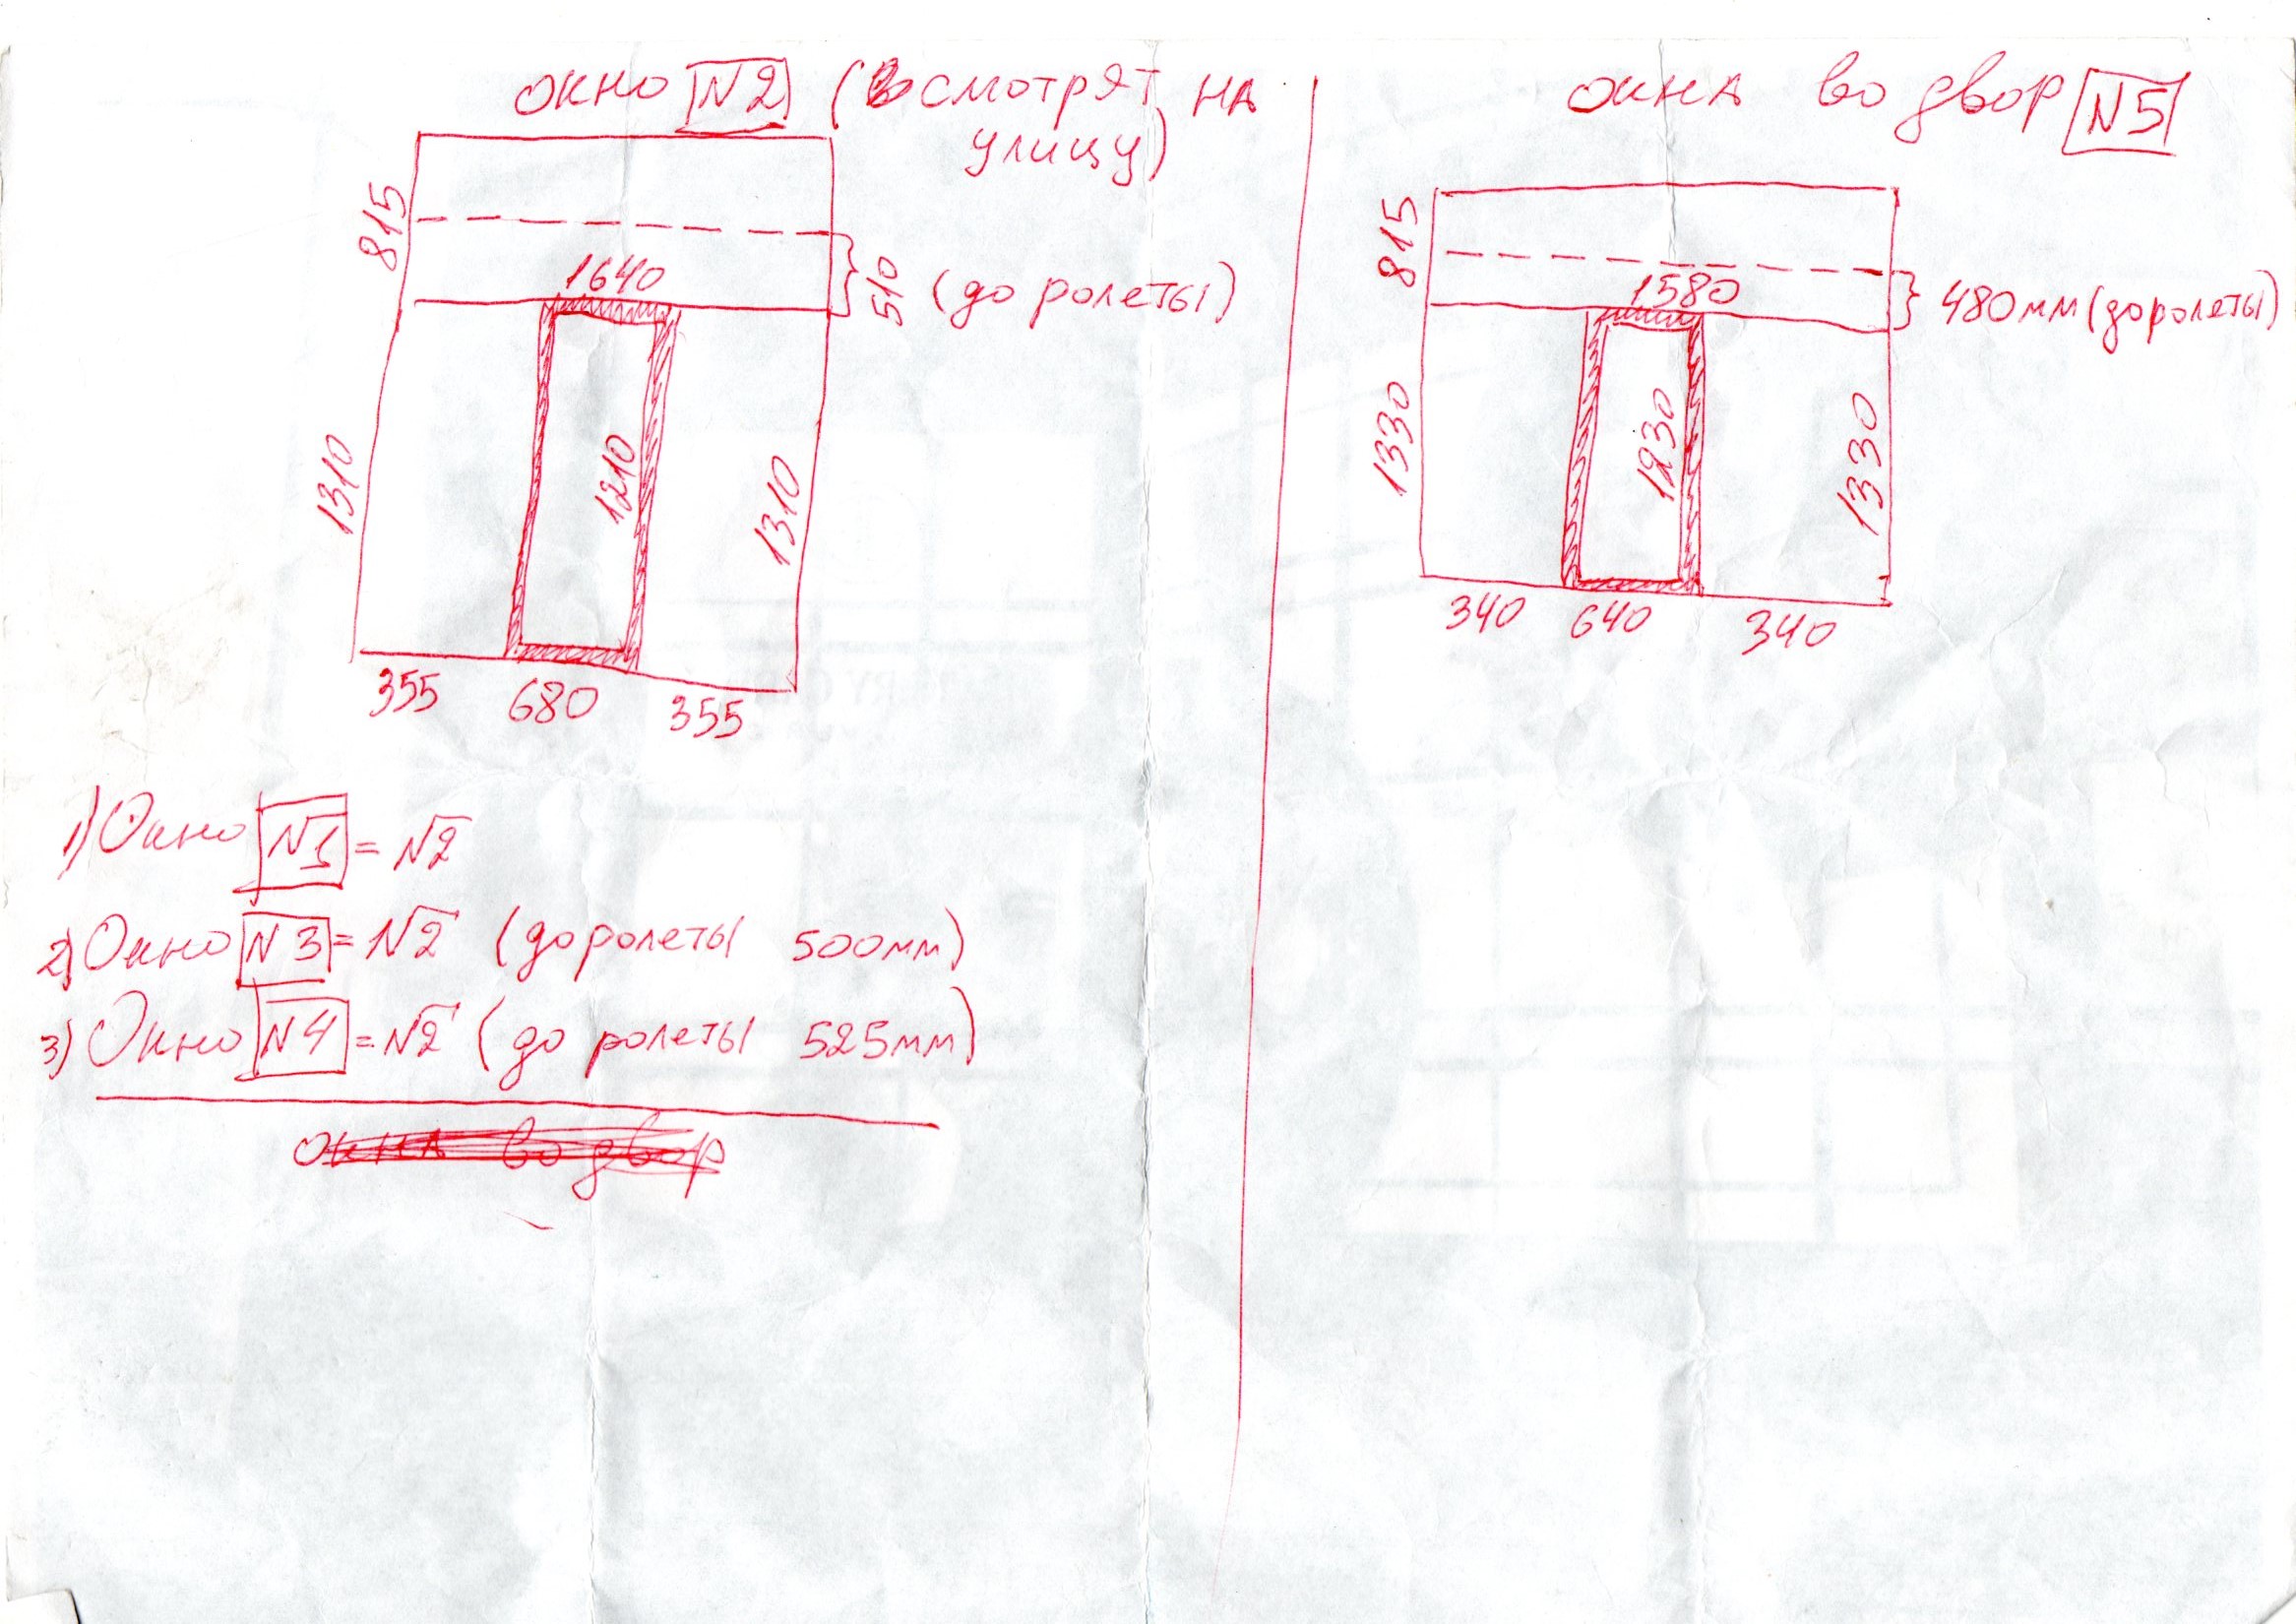 окно N2 (смотрят на
улицу)
815
1640
510 (до ролеты)
1310
1210
1310
355 680 355
1) Окно N1 = N2
2) Окно N3 = N2 (до ролеты 500мм)
3) Окно N4 = N2 (до ролеты 525мм)
окна во двор
окна во двор N5
815
1580
480мм (до ролеты)
1330
1230
1330
340 640 340